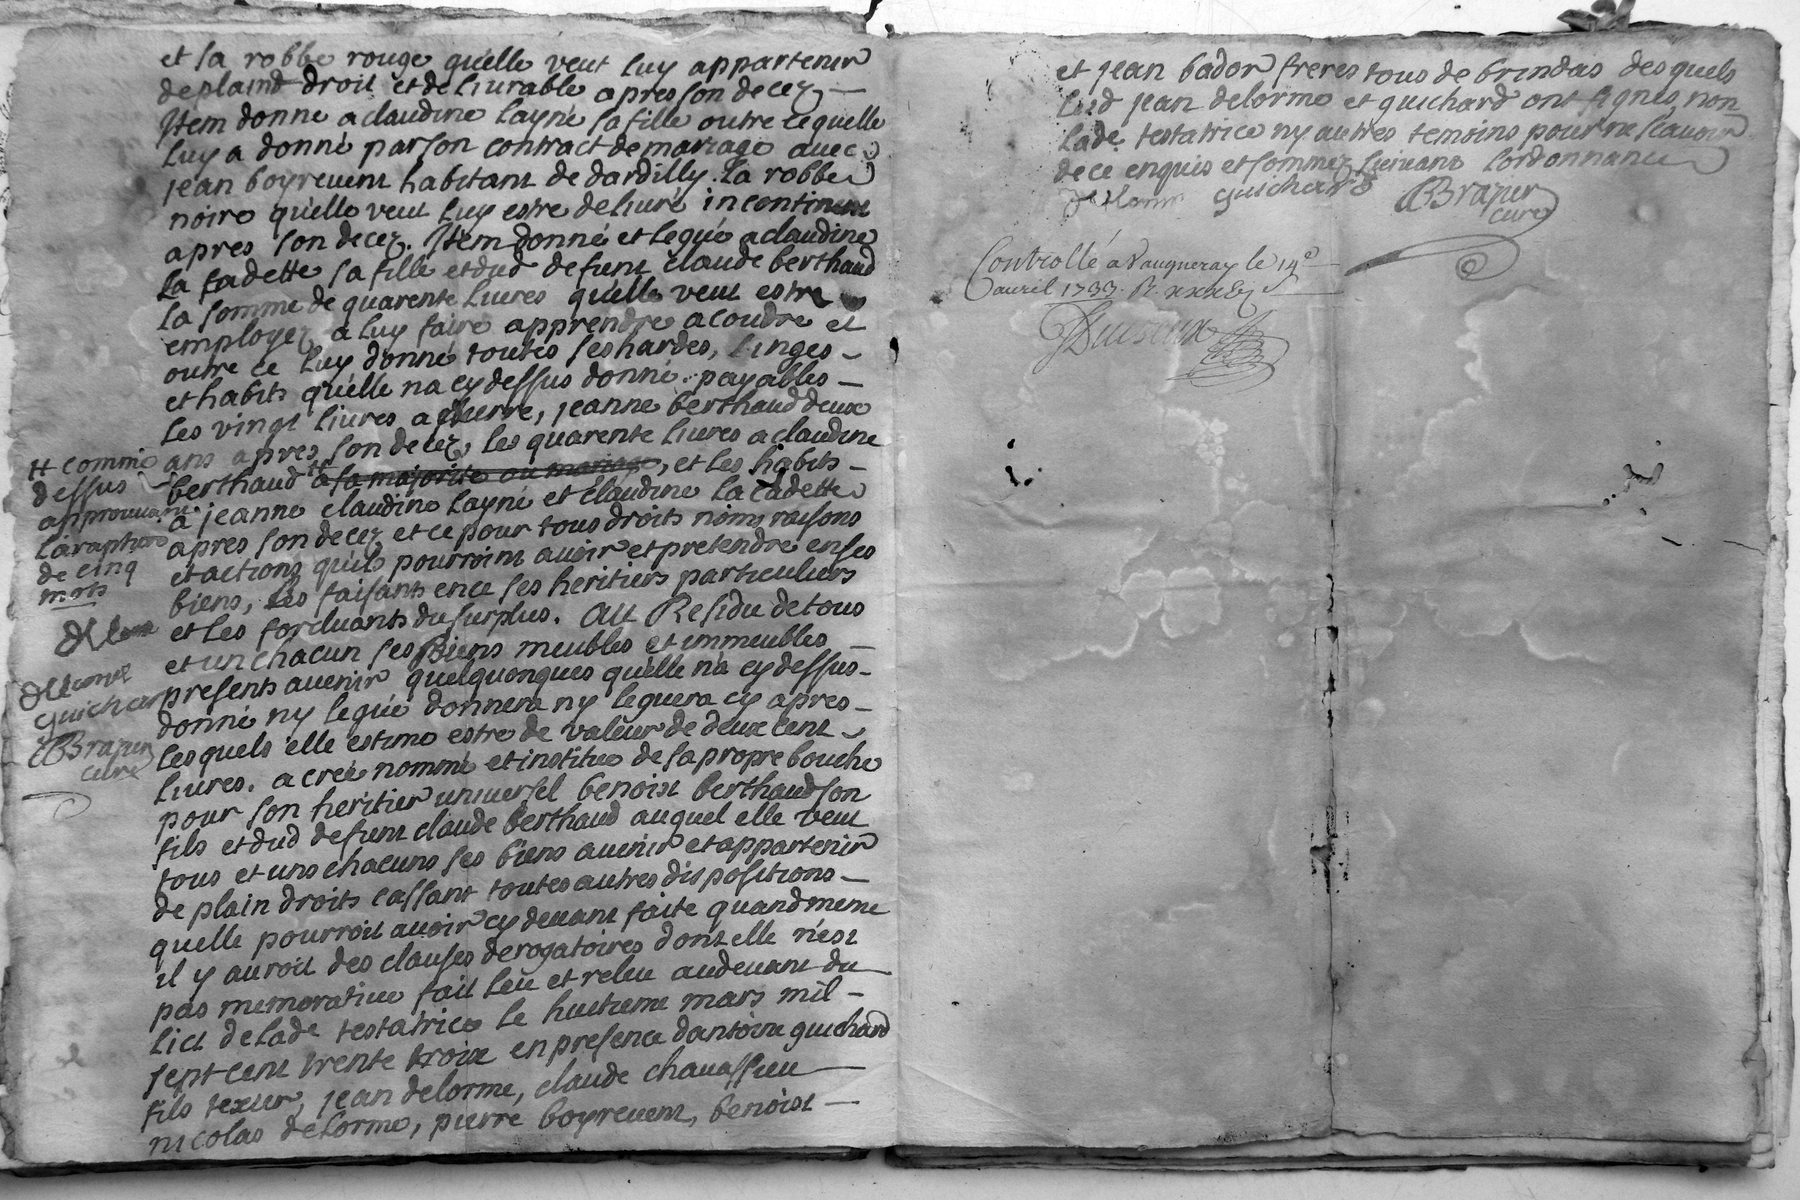 et sa robbe rouge qu'elle veut luy appartenir
de plaind droit et delivrable apres son decez
Item donne a claudine layné sa fille outre ce quelle
luy a donné par son contract de mariage avec
jean boyrevent habitant de dardilly la robbe
noire qu'elle veut luy estre delivré incontinent
apres son decez. Item donné et legué a claudine
la cadette sa fille et dud defunt claude berthaud
la somme de quarente livres qu'elle veut estre
employez a luy faire apprendre a coudre et
outre ce luy donne toutes ses hardes, linges
et habits qu'elle na cy dessus donné. payables
les vingt livres a pierre, jeanne berthaud deux
ans apres son decez, les quarente livres a claudine
berthaud # a sa majorité ou mariage, et les habits
a jeanne claudine layné et claudine la cadette
apres son decez et ce pour tous droits noms raisons
et actions qu'ils pourroint avoir et pretendre en ses
biens, les faisants en ce ses heritiers particuliers
et les forcluants du surplus. Au Residu de tous
et un chacun ses Biens meubles et immeubles
presents avenir quelquonques qu'elle n'a cy dessus
donné ny legué donnera ny leguera cy apres
lesquels elle estime estre de valeur de deux cent
livres. a creé nommé et institué de sa propre bouche
pour son heritier universel benoist berthaud son
fils et dud defunt claude berthaud auquel elle veut
tous et uns chacuns ses biens avenir et appartenir
de plain droits cassant toutes autres dispositions
quelle pourroit avoir cy devant faite quand meme
il y auroit des clauses derogatoires dont elle n'est
pas memorative fait leu et releu au devant du
lict de lade testatrice le huitieme mars mil
sept cent trente trois en presence dantoine guichard
fils texier, jean delorme, claude chavassieu
nicolas delorme, pierre boyrevent, benoist
# comme
dessus
approuvant
la rapture
de cinq
mots
delorme
guichard
Brazier
curé
et jean bador freres tous de brindas desquels
led jean delorme et guichard ont signés, non
lade testatrice ny autres temoins pour ne scavoir
de ce enquis et sommez suivant lordonnance
delorme guichard Brazier
curé
Controllé a Vaugneray le 14e
avril 1733. R.